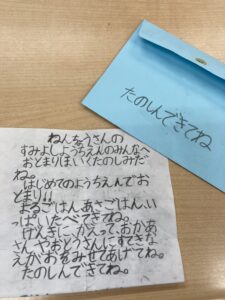 たのしんできてね
ねんちょうさんの
すみよしようちえんのみんなへ
おとまりほいくたのしみだ
ね。
はじめてのようちえんでお
とまり!!
よるごはん、あさごはん、い
っぱいたべてきてね。
げんきに、かえって、おかあ
さんやおとうさんにすてきな
えがおをみせてあげてね。
たのしんできてね。